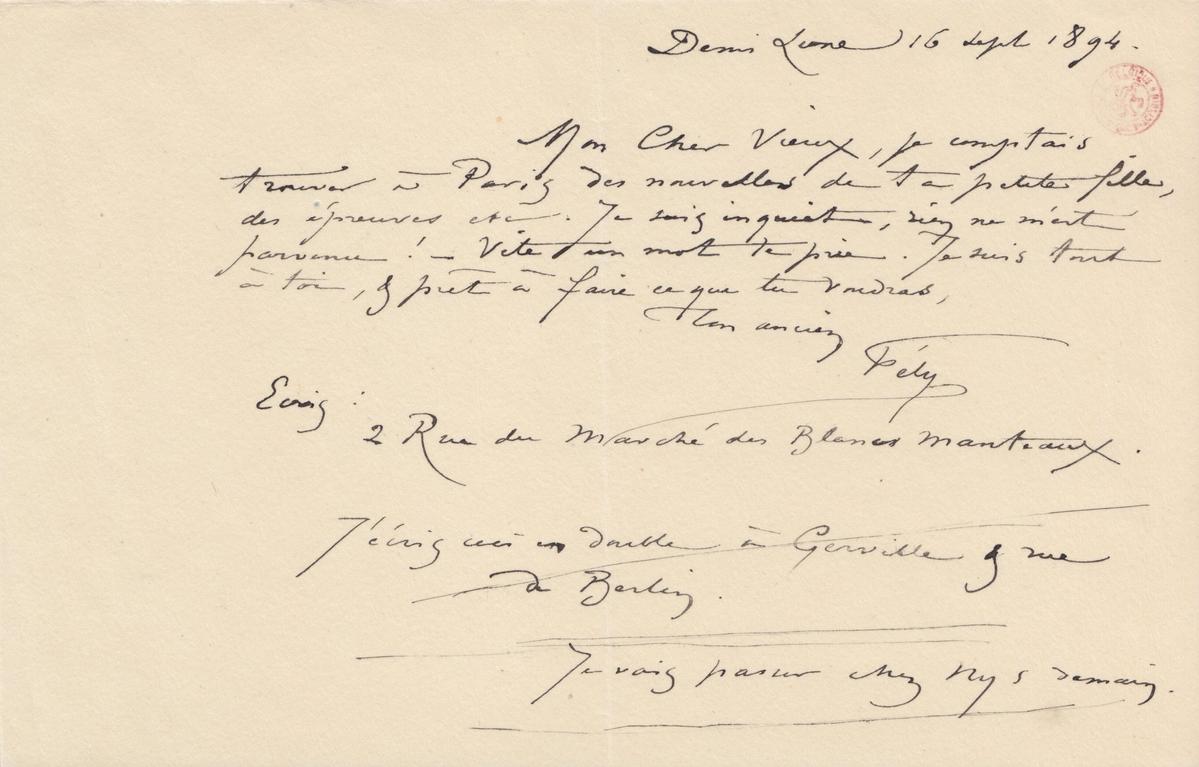 Demi Lune 16 sept 1894.
Mon Cher Vieux, je comptais
trouver à Paris des nouvelles de ta petite fille,
des épreuves etc. Je suis inquiet, rien ne m'est
parvenu ! – Vite un mot te prie. Je suis tout
à toi, & prêt à faire ce que tu voudras,
Ton ancien
Fély
Ecris :
2 Rue du Marché des Blancs Manteaux.
J'écris ceci en double à Gorville & rue
de Berlin.
Je vais passer chez Nys demain.